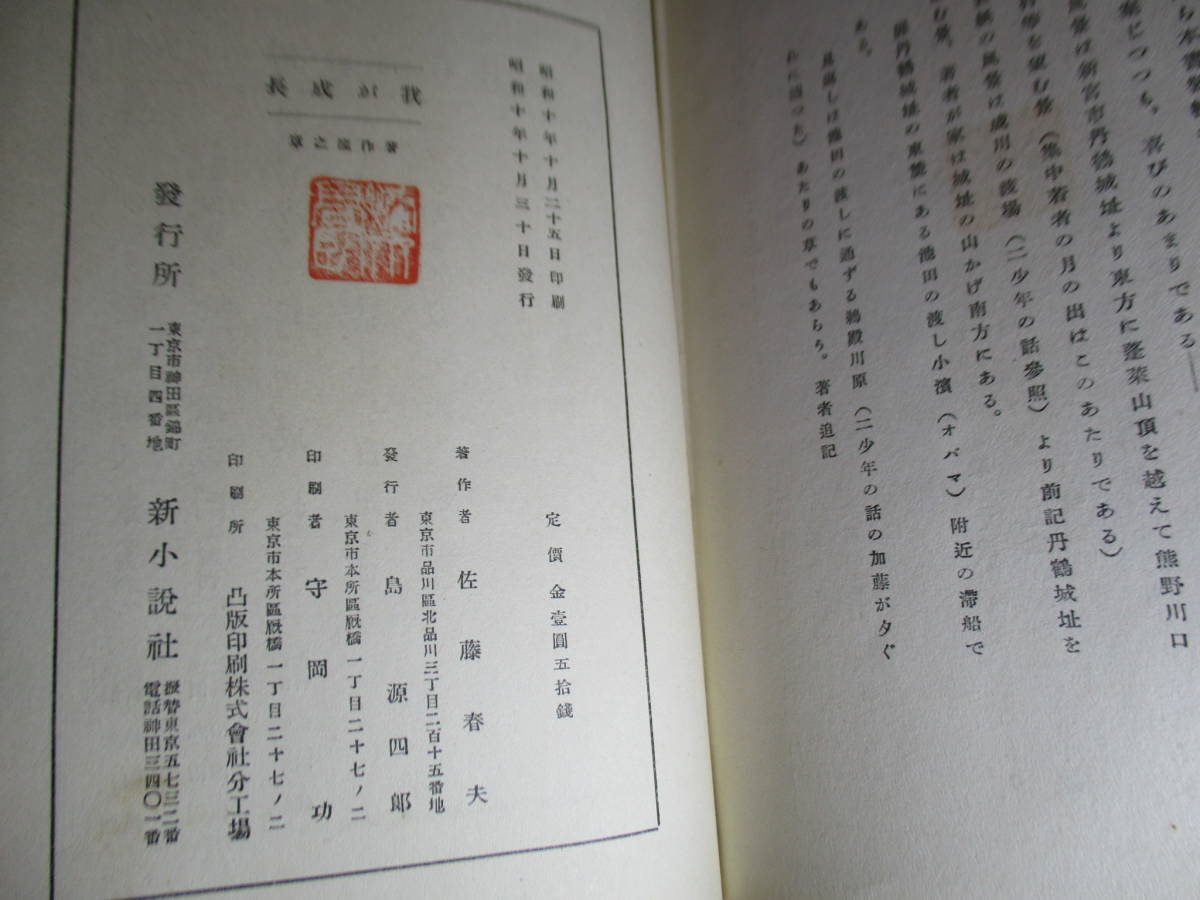 ある
案じつつも、喜びのあまりである――
風景は新宮市丹鶴城址より東方に蓬莱山頂を越えて熊野川口
を望む景(集中著者の月の出はこのあたりである)
の風景は成川の渡場(二少年の話參照)より前記丹鶴城址を
む景。著者が家は城址の山かげ南方にある。
扉丹鶴城址の東麓にある池田の渡し小濱(オバマ)附近の滯船で
ある。
見返しは池田の渡しに通ずる鵜殿川原(二少年の話の加藤が夕ぐ
れに通つた)あたりの草でもあらう。著者追記
昭和十年十月二十五日印刷
昭和十年十月三十日發行
我が成長
著作之證章
定價金壹圓五拾錢
著作者 佐藤春夫
東京市品川區北品川三丁目二百十五番地
發行者 島源四郎
東京市本所區厩橋一丁目二十七ノ二
印刷者 守岡功
東京市本所區厩橋一丁目二十七ノ二
印刷所 凸版印刷株式會社分工場
發行所 東京市神田區錦町一丁目四番地 新小說社 振替東京五七三二番 電話神田三四〇一番